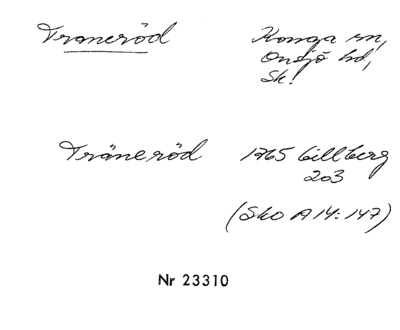 Traneröd Konga sn,
Onsjö hd,
Sk.
Träneröd 1765 Gillberg
203
(Sko A 14: 147)
Nr 23310